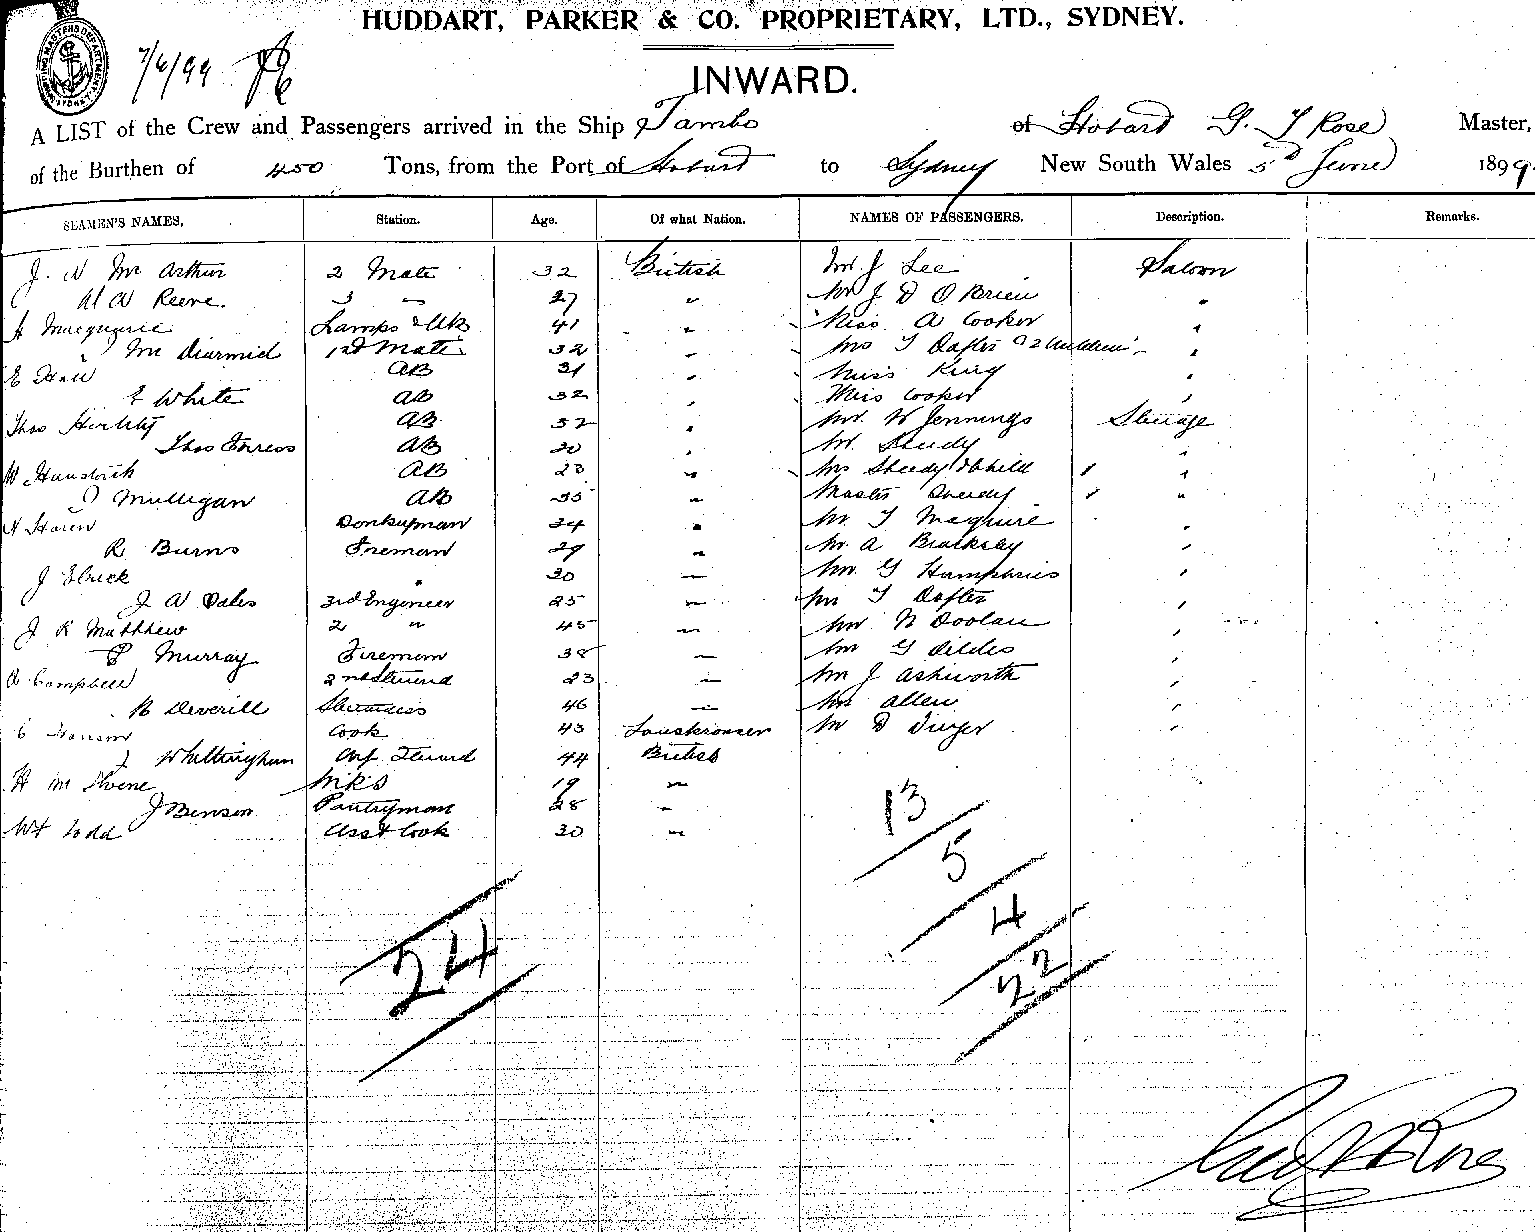 HUDDART, PARKER & CO. PROPRIETARY, LTD., SYDNEY.
7/6/99
INWARD.
A LIST of the Crew and Passengers arrived in the Ship Tambo of Hobart G. T Rose Master,
of the Burthen of 450 Tons, from the Port of Hobart to Sydney New South Wales 5th June 1899.
SEAMEN'S NAMES. Station. Age. Of what Nation. NAMES OF PASSENGERS. Description. Remarks.
J. N Mc Arthur 2 Mate 32 British Mr J Lee Saloon
W Reeve. 3 " 27 " Mr J D O Brien "
A Macquarie Lamps & AB 41 " Miss A Cooker "
Mc Diarmid 1st Mate 32 " Mrs T Dafter & 2 children "
E Hall AB 31 " Miss King "
F White AB 32 " Miss Cooker "
Thos AB 32 " Mr W Jennings Steerage
Thos AB 30 " Mr Sheedy "
W AB 23 " Mrs Sheedy & child "
Mulligan AB 35 " Master Sheedy "
H Donkeyman 34 " Mr T Maguire "
R Burns Fireman 29 " Mr A "
J " 30 " Mr G Humphries "
J W Oales 3rd Engineer 25 " Mr T Dafter "
J R Matthew 2 " 45 " Mr N Doolan "
P Murray Fireman 38 " Mr G "
A Campbell 2nd Steward 23 " Mr J Ashworth "
R Deverill Stewardess 46 " Mr Allen "
C Cook 43 Mr D "
J Whittingham Chf Steward 44 British
H 19 "
J Benson Pantryman 28 "
Wm Todd Asst Cook 30 "
13
5
4
24
22